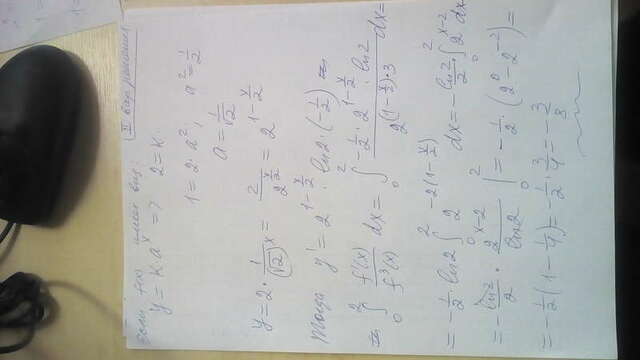 II вар. решения
Если f(x) имеет вид:
y = K · a^x => 2 = K
1 = 2 · a^2, a^2 = 1/2
a = 1/√2
y = 2 · 1/(√2)^x = 2/2^(x/2) = 2^(1-x/2)
Тогда y' = 2^(1-x/2) · ln2 · (-1/2)
∫_0^2 f'(x)/f^3(x) dx = ∫_0^2 (-1/2 · 2^(1-x/2) · ln2)/2^((1-x/2)·3) dx =
= -1/2 · ln2 ∫_0^2 2^(-2(1-x/2)) dx = -ln2/2 · ∫_0^2 2^(x-2) dx
= -ln2/2 · 2^(x-2)/ln2 |_0^2 = -1/2 · (2^0 - 2^(-2)) =
= -1/2 (1 - 1/4) = -1/2 · 3/4 = -3/8